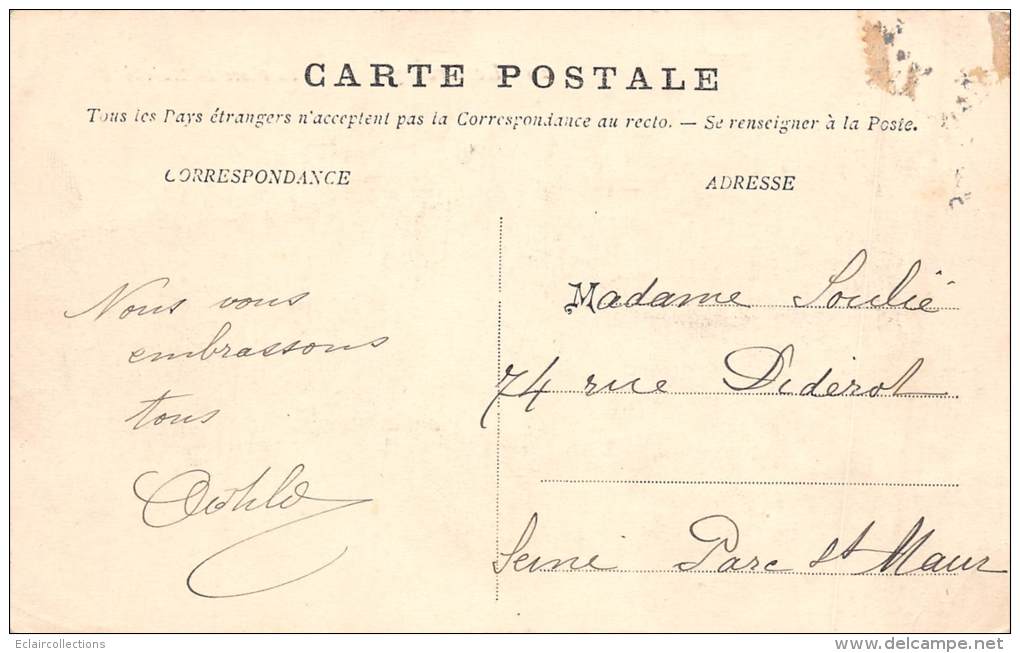 CARTE POSTALE
Tous les Pays étrangers n'acceptent pas la Correspondance au recto. — Se renseigner à la Poste.
CORRESPONDANCE
ADRESSE
Nous vous
embrassons
tous
Madame Soulié
74 rue Diderot
Seine Parc St Maur
Eclaircollections
www.delcampe.net